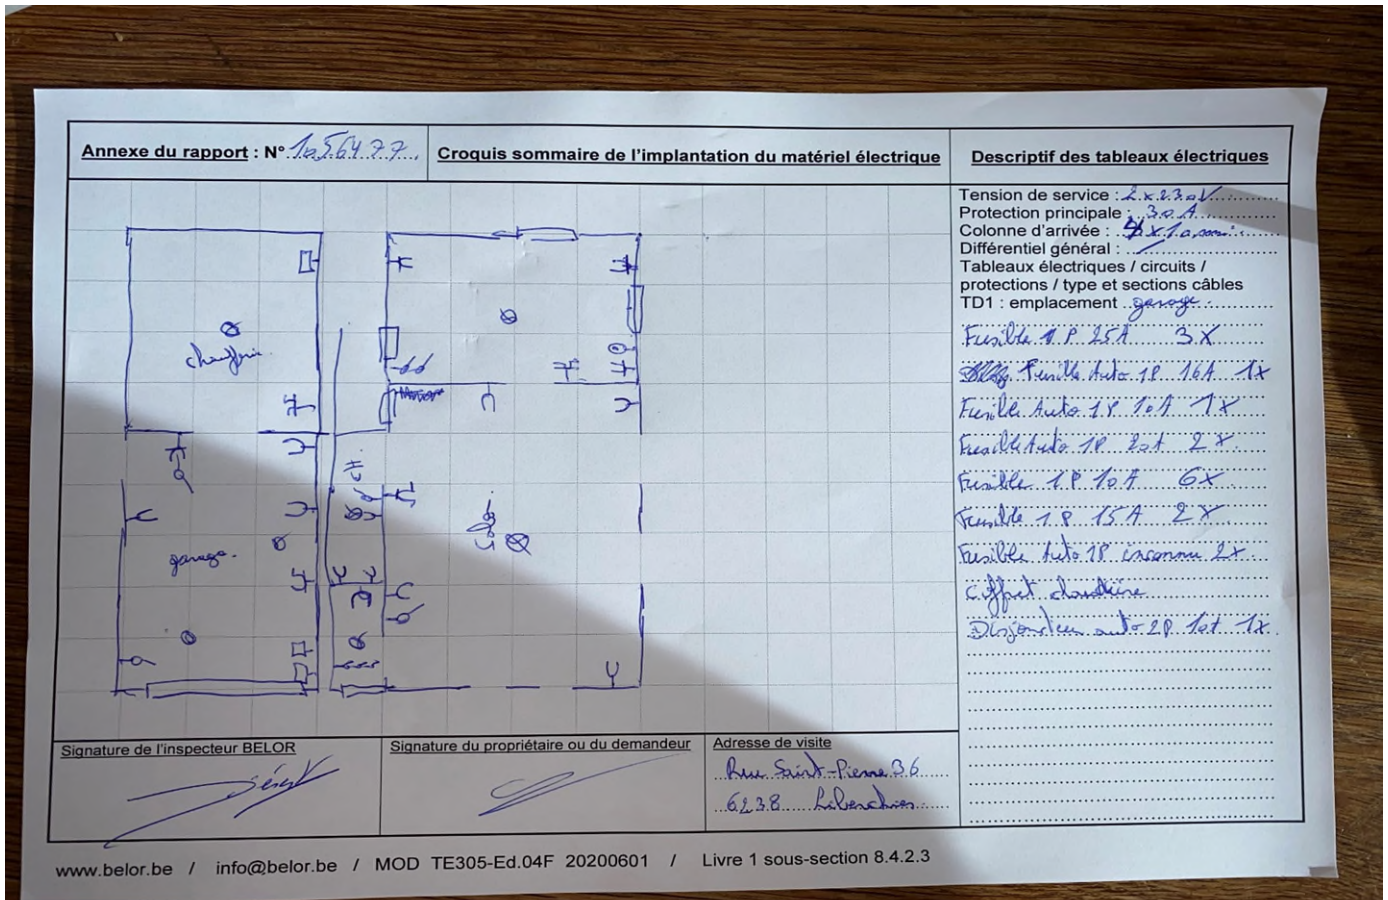 Annexe du rapport : N° 1656477
Croquis sommaire de l'implantation du matériel électrique
Descriptif des tableaux électriques
Tension de service : 2x230V
Protection principale : 30 A
Colonne d'arrivée : 4x10 mm²
Différentiel général : /
Tableaux électriques / circuits /
protections / type et sections câbles
TD1 : emplacement garage
Fusible 1P 25A 3X
Fusible Auto 1P 16A 1X
Fusible Auto 1P 10A 1X
Fusible Auto 1P 20A 2X
Fusible 1P 10A 6X
Fusible 1P 15A 2X
Fusible Auto 1P inconnu 2X
Coffret chaudière
Disjoncteur auto 2P 10A 1X
chaufferie
garage
Signature de l'inspecteur BELOR
Signature du propriétaire ou du demandeur
Adresse de visite
Rue Saint-Pierre 36
6238 Liberchies
www.belor.be / info@belor.be / MOD TE305-Ed.04F 20200601 / Livre 1 sous-section 8.4.2.3